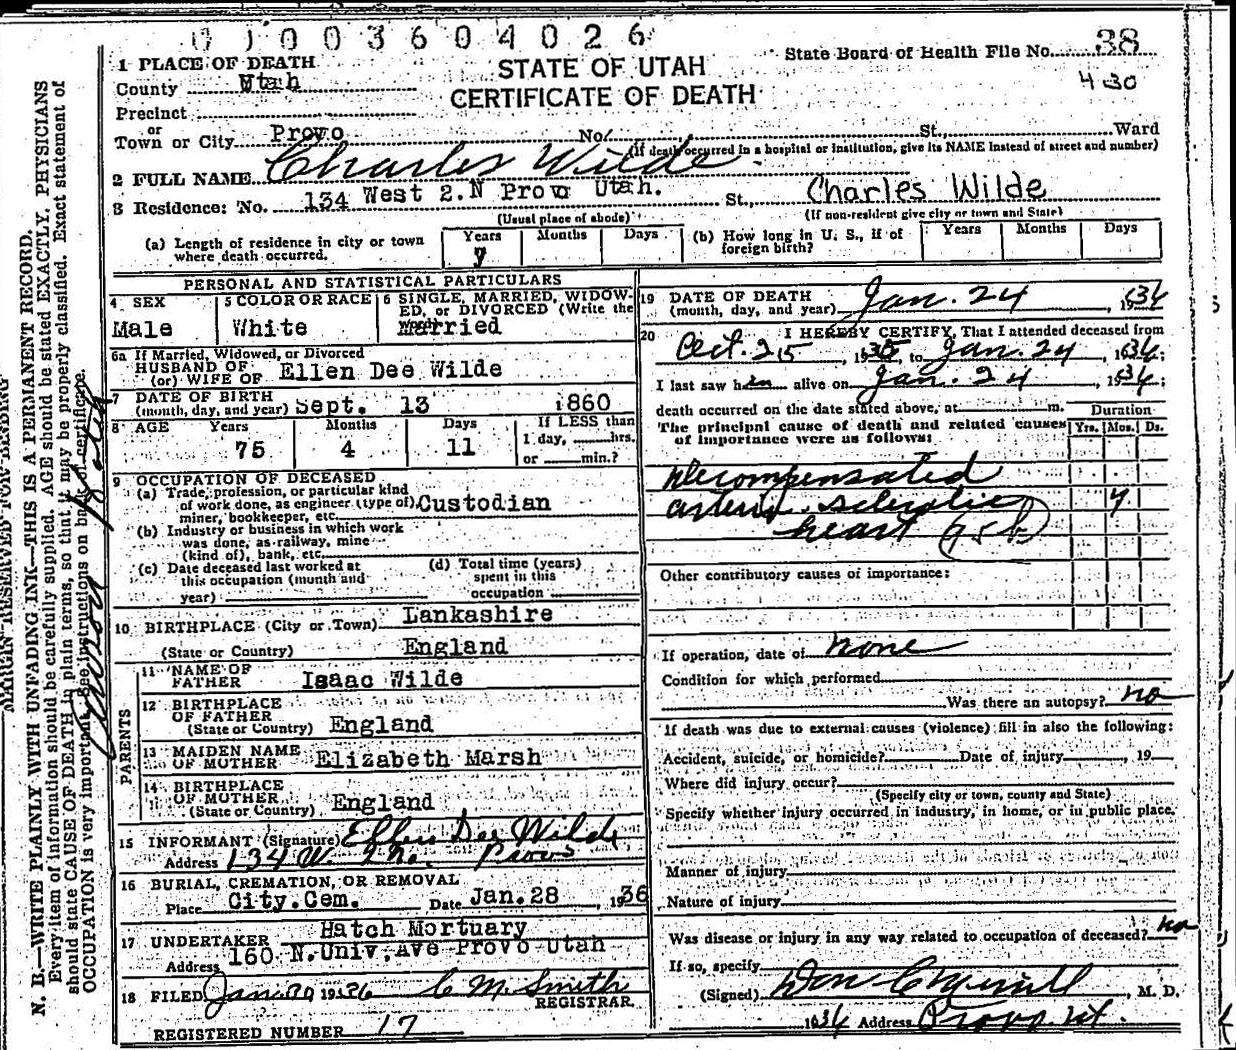 01003604026
State Board of Health File No. 38
430
STATE OF UTAH
CERTIFICATE OF DEATH
1 PLACE OF DEATH
County Utah
Precinct
or
Town or City Provo No. St., Ward
(If death occurred in a hospital or institution, give its NAME instead of street and number)
2 FULL NAME Charles Wilde
3 Residence: No. 134 West 2.N Provo Utah. St., Charles Wilde
(Usual place of abode) (If non-resident give city or town and State)
(a) Length of residence in city or town where death occurred. Years 7 Months Days
(b) How long in U. S., if of foreign birth? Years Months Days
PERSONAL AND STATISTICAL PARTICULARS
4 SEX
Male
5 COLOR OR RACE
White
6 SINGLE, MARRIED, WIDOW-
ED, or DIVORCED (Write the
word)
Married
6a If Married, Widowed, or Divorced
HUSBAND OF
(or) WIFE OF Ellen Dee Wilde
7 DATE OF BIRTH
(month, day, and year) Sept. 13 1860
8 AGE Years Months Days If LESS than
75 4 11 1 day, hrs.
or min.?
9 OCCUPATION OF DECEASED
(a) Trade, profession, or particular kind
of work done, as engineer (type of) Custodian
miner, bookkeeper, etc.
(b) Industry or business in which work
was done, as railway, mine
(kind of), bank, etc.
(c) Date deceased last worked at
this occupation (month and
year)
(d) Total time (years)
spent in this
occupation
10 BIRTHPLACE (City or Town) Lankashire
(State or Country) England
PARENTS
11 NAME OF
FATHER Isaac Wilde
12 BIRTHPLACE
OF FATHER
(State or Country) England
13 MAIDEN NAME
OF MOTHER Elizabeth Marsh
14 BIRTHPLACE
OF MOTHER
(State or Country) England
15 INFORMANT (Signature) Ellen Dee Wilde
Address 134 W 2 No. Provo
16 BURIAL, CREMATION, OR REMOVAL
Place City.Cem. Date Jan.28, 1936
17 UNDERTAKER Hatch Mortuary
Address 160 N.Univ.Ave Provo Utah
18 FILED Jan 30 1936 C M. Smith
REGISTRAR.
REGISTERED NUMBER 17
19 DATE OF DEATH
(month, day, and year) Jan. 24, 1936
20 I HEREBY CERTIFY, That I attended deceased from
Oct. 25, 1935, to Jan. 24, 1936;
I last saw him alive on Jan. 24, 1936;
death occurred on the date stated above, at m.
The principal cause of death and related causes
of importance were as follows:
Duration
Yrs. Mos. Ds.
Decompensated
arterio sclerotic 4
heart 95b
Other contributory causes of importance:
If operation, date of none
Condition for which performed
Was there an autopsy? no
If death was due to external causes (violence) fill in also the following:
Accident, suicide, or homicide? Date of injury, 19
Where did injury occur?
(Specify city or town, county and State)
Specify whether injury occurred in industry, in home, or in public place.
Manner of injury
Nature of injury
Was disease or injury in any way related to occupation of deceased? no
If so, specify
(Signed) Don C Merrill, M. D.
1936 Address Provo Ut.
MARGIN RESERVED FOR BINDING
N. B.—WRITE PLAINLY WITH UNFADING INK—THIS IS A PERMANENT RECORD.
Every item of information should be carefully supplied. AGE should be stated EXACTLY. PHYSICIANS
should state CAUSE OF DEATH in plain terms, so that it may be properly classified. Exact statement of
OCCUPATION is very important. See instructions on back of certificate.